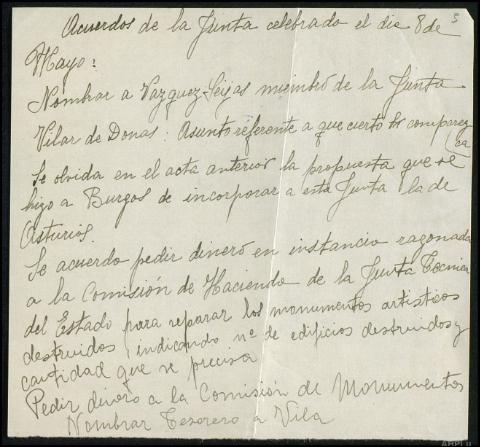 3
Acuerdos de la Junta celebrado el dia 8 de
Mayo:
Nombrar a Vazquez-Seijas miembro de la Junta
Vilar de Donas: Asunto referente a que cierto comparez
ca
Se olvida en el acta anterior la propuesta que se
hizo a Burgos de incorporar a esta Junta la de
Asturias.
Se acuerdo pedir dinero en instancia razonada
a la Comisión de Hacienda de la Junta Tecnica
del Estado para reparar los monumentos artisticos
destruidos, indicando nº de edificios destruidos y
cantidad que se precisa
Pedir dinero a la Comisión de Monumentos
Nombrar Tesorero a Vila